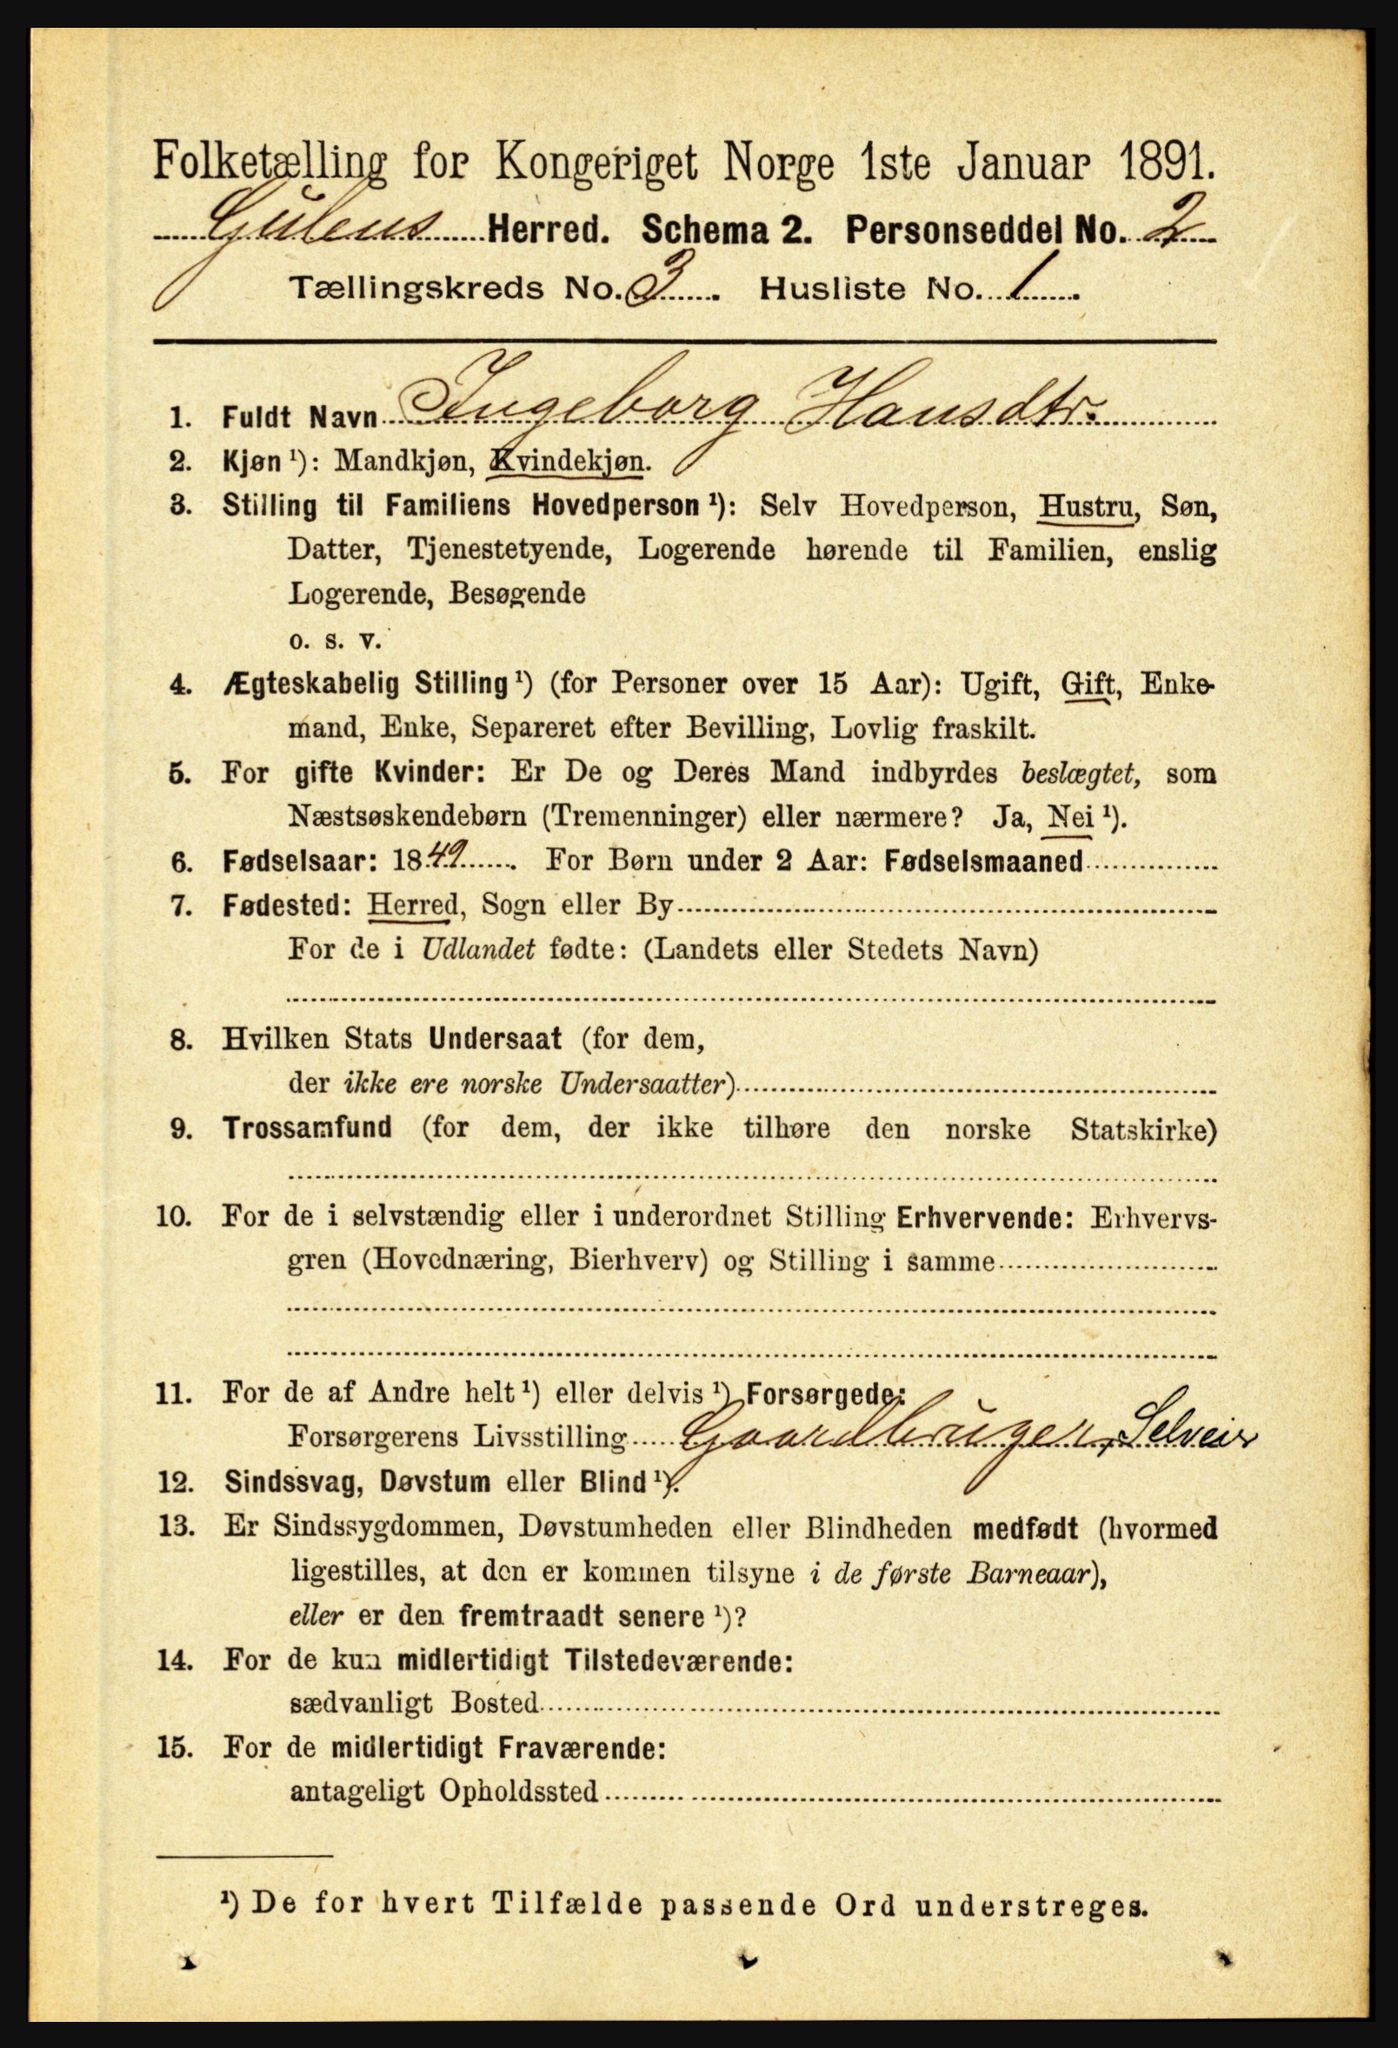 Folketælling for Kongeriget Norge 1ste Januar 1891.
Gulens Herred. Schema 2. Personseddel No. 2
Tællingskreds No. 3. Husliste No. 1.
1. Fuldt Navn Ingeborg Hansdtr.
2. Kjøn ¹): Mandkjøn, Kvindekjøn.
3. Stilling til Familiens Hovedperson ¹): Selv Hovedperson, Hustru, Søn,
Datter, Tjenestetyende, Logerende hørende til Familien, enslig
Logerende, Besøgende
o. s. v.
4. Ægteskabelig Stilling ¹) (for Personer over 15 Aar): Ugift, Gift, Enke-
mand, Enke, Separeret efter Bevilling, Lovlig fraskilt.
5. For gifte Kvinder: Er De og Deres Mand indbyrdes beslægtet, som
Næstsøskendebørn (Tremenninger) eller nærmere? Ja, Nei ¹).
6. Fødselsaar: 1849. For Børn under 2 Aar: Fødselsmaaned
7. Fødested: Herred, Sogn eller By
For de i Udlandet fødte: (Landets eller Stedets Navn)
8. Hvilken Stats Undersaat (for dem,
der ikke ere norske Undersaatter)
9. Trossamfund (for dem, der ikke tilhøre den norske Statskirke)
10. For de i selvstændig eller i underordnet Stilling Erhvervende: Erhvervs-
gren (Hovednæring, Bierhverv) og Stilling i samme
11. For de af Andre helt ¹) eller delvis ¹) Forsørgede:
Forsørgerens Livsstilling Gaardbruger, Selveier
12. Sindssvag, Døvstum eller Blind ¹).
13. Er Sindssygdommen, Døvstumheden eller Blindheden medfødt (hvormed
ligestilles, at den er kommen tilsyne i de første Barneaar),
eller er den fremtraadt senere ¹)?
14. For de kun midlertidigt Tilstedeværende:
sædvanligt Bosted
15. For de midlertidigt Fraværende:
antageligt Opholdssted
¹) De for hvert Tilfælde passende Ord understreges.